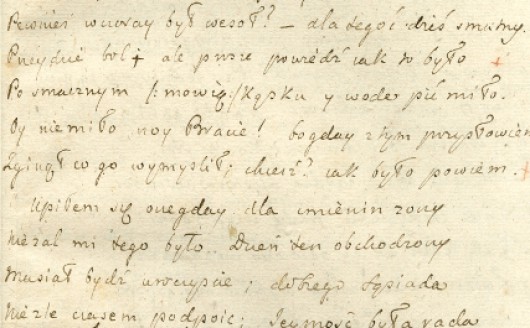 Pewnieś wczoray był wesół? – dla tegoś dziś smutny.
Przeydzie bol + ale prosze powiedź iak to było +
Po smacznym /: mowią :/ kąsku y wode pić miło.
Oy niemiło moy Bracie! bogday z tym przysłowiem
Zginął co go wymyslił; chcesz? iak było powiem. +
Upiłem się onegday dla imienin zony
Nie zal mi tego było. Dzień ten obchodzony
Musiał bydź uroczyscie; dobrego Sąsiada
Nieźle czasem podpoic; Jeymość była rada